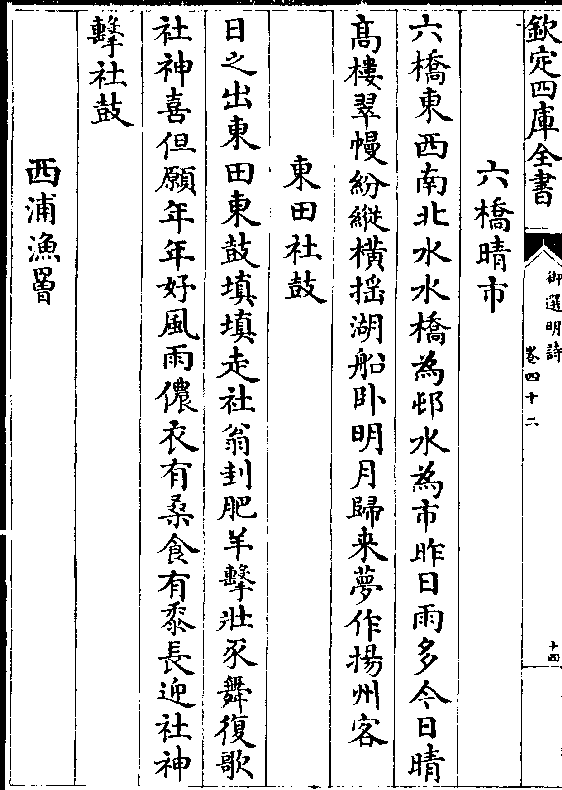 欽定四庫全書
御選明詩
卷四十二
十四
六橋晴市
六橋東西南北水水橋為邨水為市昨日雨多今日晴
高樓翠幔紛縱橫揺湖船卧明月歸来夢作揚州客
東田社鼓
日之出東田東鼓填填走社翁刲肥羊擊壯豕舞復歌
社神喜但願年年好風雨儂衣有桑食有黍長迎社神
擊社鼓
西浦漁罾